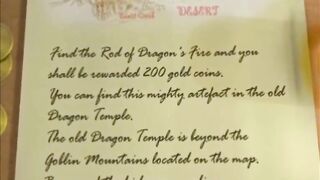 DESERT
Find the Rod of Dragon's Fire and you
shall be rewarded 200 gold coins.
You can find this mighty artefact in the old
Dragon Temple.
The old Dragon Temple is beyond the
Goblin Mountains located on the map.